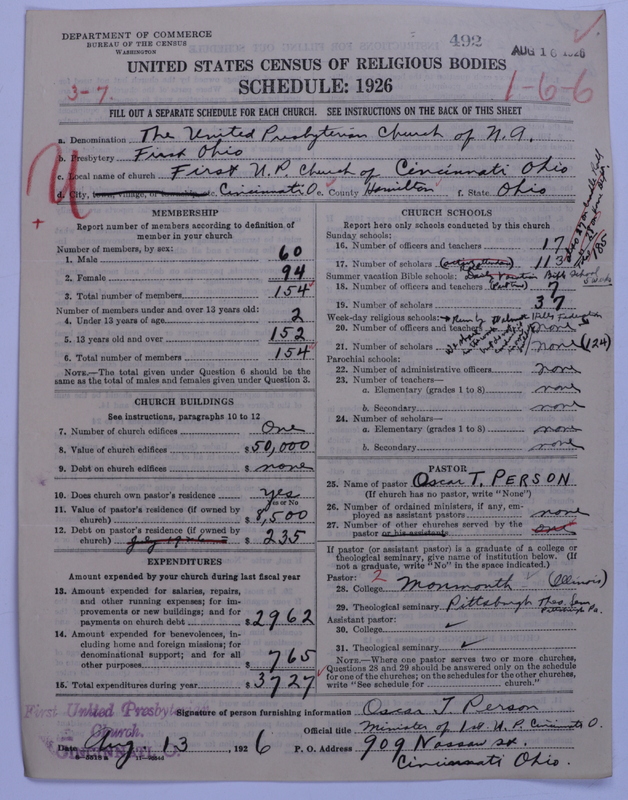 DEPARTMENT OF COMMERCE
BUREAU OF THE CENSUS
WASHINGTON
492
AUG 16 1926
UNITED STATES CENSUS OF RELIGIOUS BODIES
SCHEDULE: 1926
3-7.
1-6-6
FILL OUT A SEPARATE SCHEDULE FOR EACH CHURCH. SEE INSTRUCTIONS ON THE BACK OF THIS SHEET
a. Denomination The United Presbyterian Church of N.A.
b. Presbytery First Ohio
c. Local name of church First U.P. Church of Cincinnati Ohio
d. City, town, village, or Cincinnati O. e. County Hamilton f. State Ohio
MEMBERSHIP
Report number of members according to definition of member in your church
Number of members, by sex:
1. Male 60
2. Female 94
3. Total number of members 154
Number of members under and over 13 years old:
4. Under 13 years of age 2
5. 13 years old and over 152
6. Total number of members 154
NOTE.—The total given under Question 6 should be the same as the total of males and females given under Question 3.
CHURCH BUILDINGS
See instructions, paragraphs 10 to 12
7. Number of church edifices One
8. Value of church edifices $50,000
9. Debt on church edifices $ none
10. Does church own pastor's residence yes
Yes or No
11. Value of pastor's residence (if owned by church) $8,500
12. Debt on pastor's residence (if owned by church) $235
EXPENDITURES
Amount expended by your church during last fiscal year
13. Amount expended for salaries, repairs, and other running expenses; for improvements or new buildings; and for payments on church debt $2962
14. Amount expended for benevolences, including home and foreign missions; for denominational support; and for all other purposes $765
15. Total expenditures during year $3727
CHURCH SCHOOLS
Report here only schools conducted by this church
Sunday schools:
16. Number of officers and teachers 17
17. Number of scholars 113
85
Summer vacation Bible schools: Daily Vacation Bible School
5 weeks
18. Number of officers and teachers (Part time) 7
19. Number of scholars 37
Week-day religious schools: Run by Walnut Hills Federation
20. Number of officers and teachers none
21. Number of scholars none (124)
Parochial schools:
22. Number of administrative officers none
23. Number of teachers—
a. Elementary (grades 1 to 8) none
b. Secondary none
24. Number of scholars—
a. Elementary (grades 1 to 8) none
b. Secondary none
PASTOR
25. Name of pastor Oscar T. PERSON
(If church has no pastor, write "None")
26. Number of ordained ministers, if any, employed as assistant pastors none
27. Number of other churches served by the pastor or his assistants
If pastor (or assistant pastor) is a graduate of a college or theological seminary, give name of institution below. (If not a graduate, write "No" in the space indicated.)
Pastor: 2
28. College Monmouth (Illinois)
29. Theological seminary Pittsburgh Theo. Sem Pittsburgh Pa.
Assistant pastor:
30. College
31. Theological seminary
NOTE.—Where one pastor serves two or more churches, Questions 28 and 29 should be answered only on the schedule for one of the churches; on the schedules for the other churches, write "See schedule for church."
First United Presbyterian
Church.
CINCINNATI, O.
Signature of person furnishing information Oscar T Person
Official title Minister of 1st U.P. Cincinnati O.
Date Aug 13, 1926 P. O. Address 909 Nassau st.
Cincinnati Ohio.